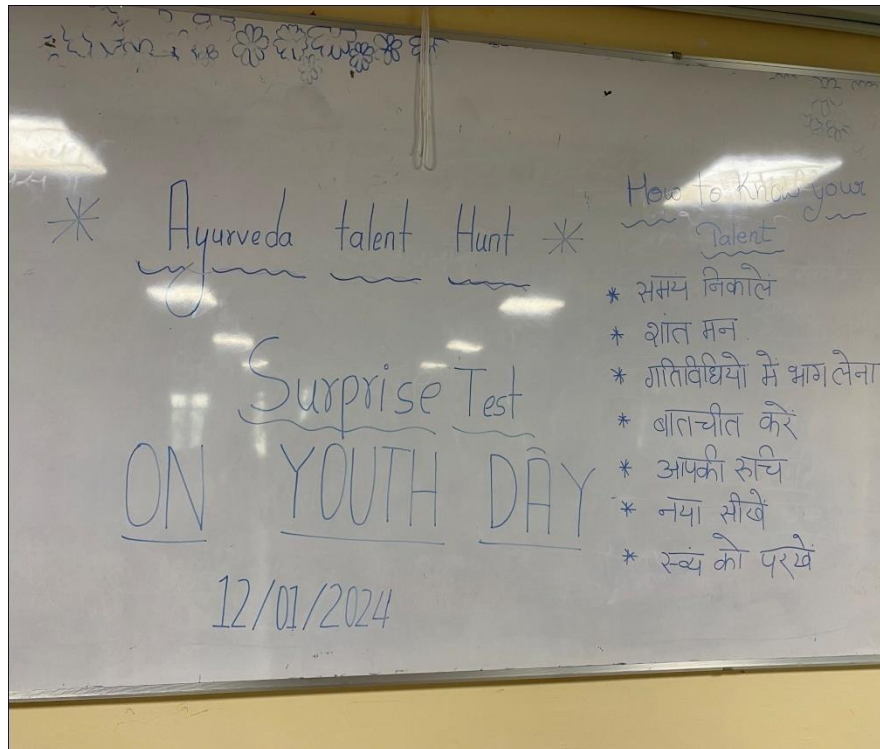 * Ayurveda talent Hunt *
Surprise Test
ON YOUTH DAY
12/01/2024
How to Know your
Talent
* समय निकालें
* शांत मन
* गतिविधियो में भाग लेना
* बातचीत करें
* आपकी रुचि
* नया सीखें
* स्व्यं को परखें